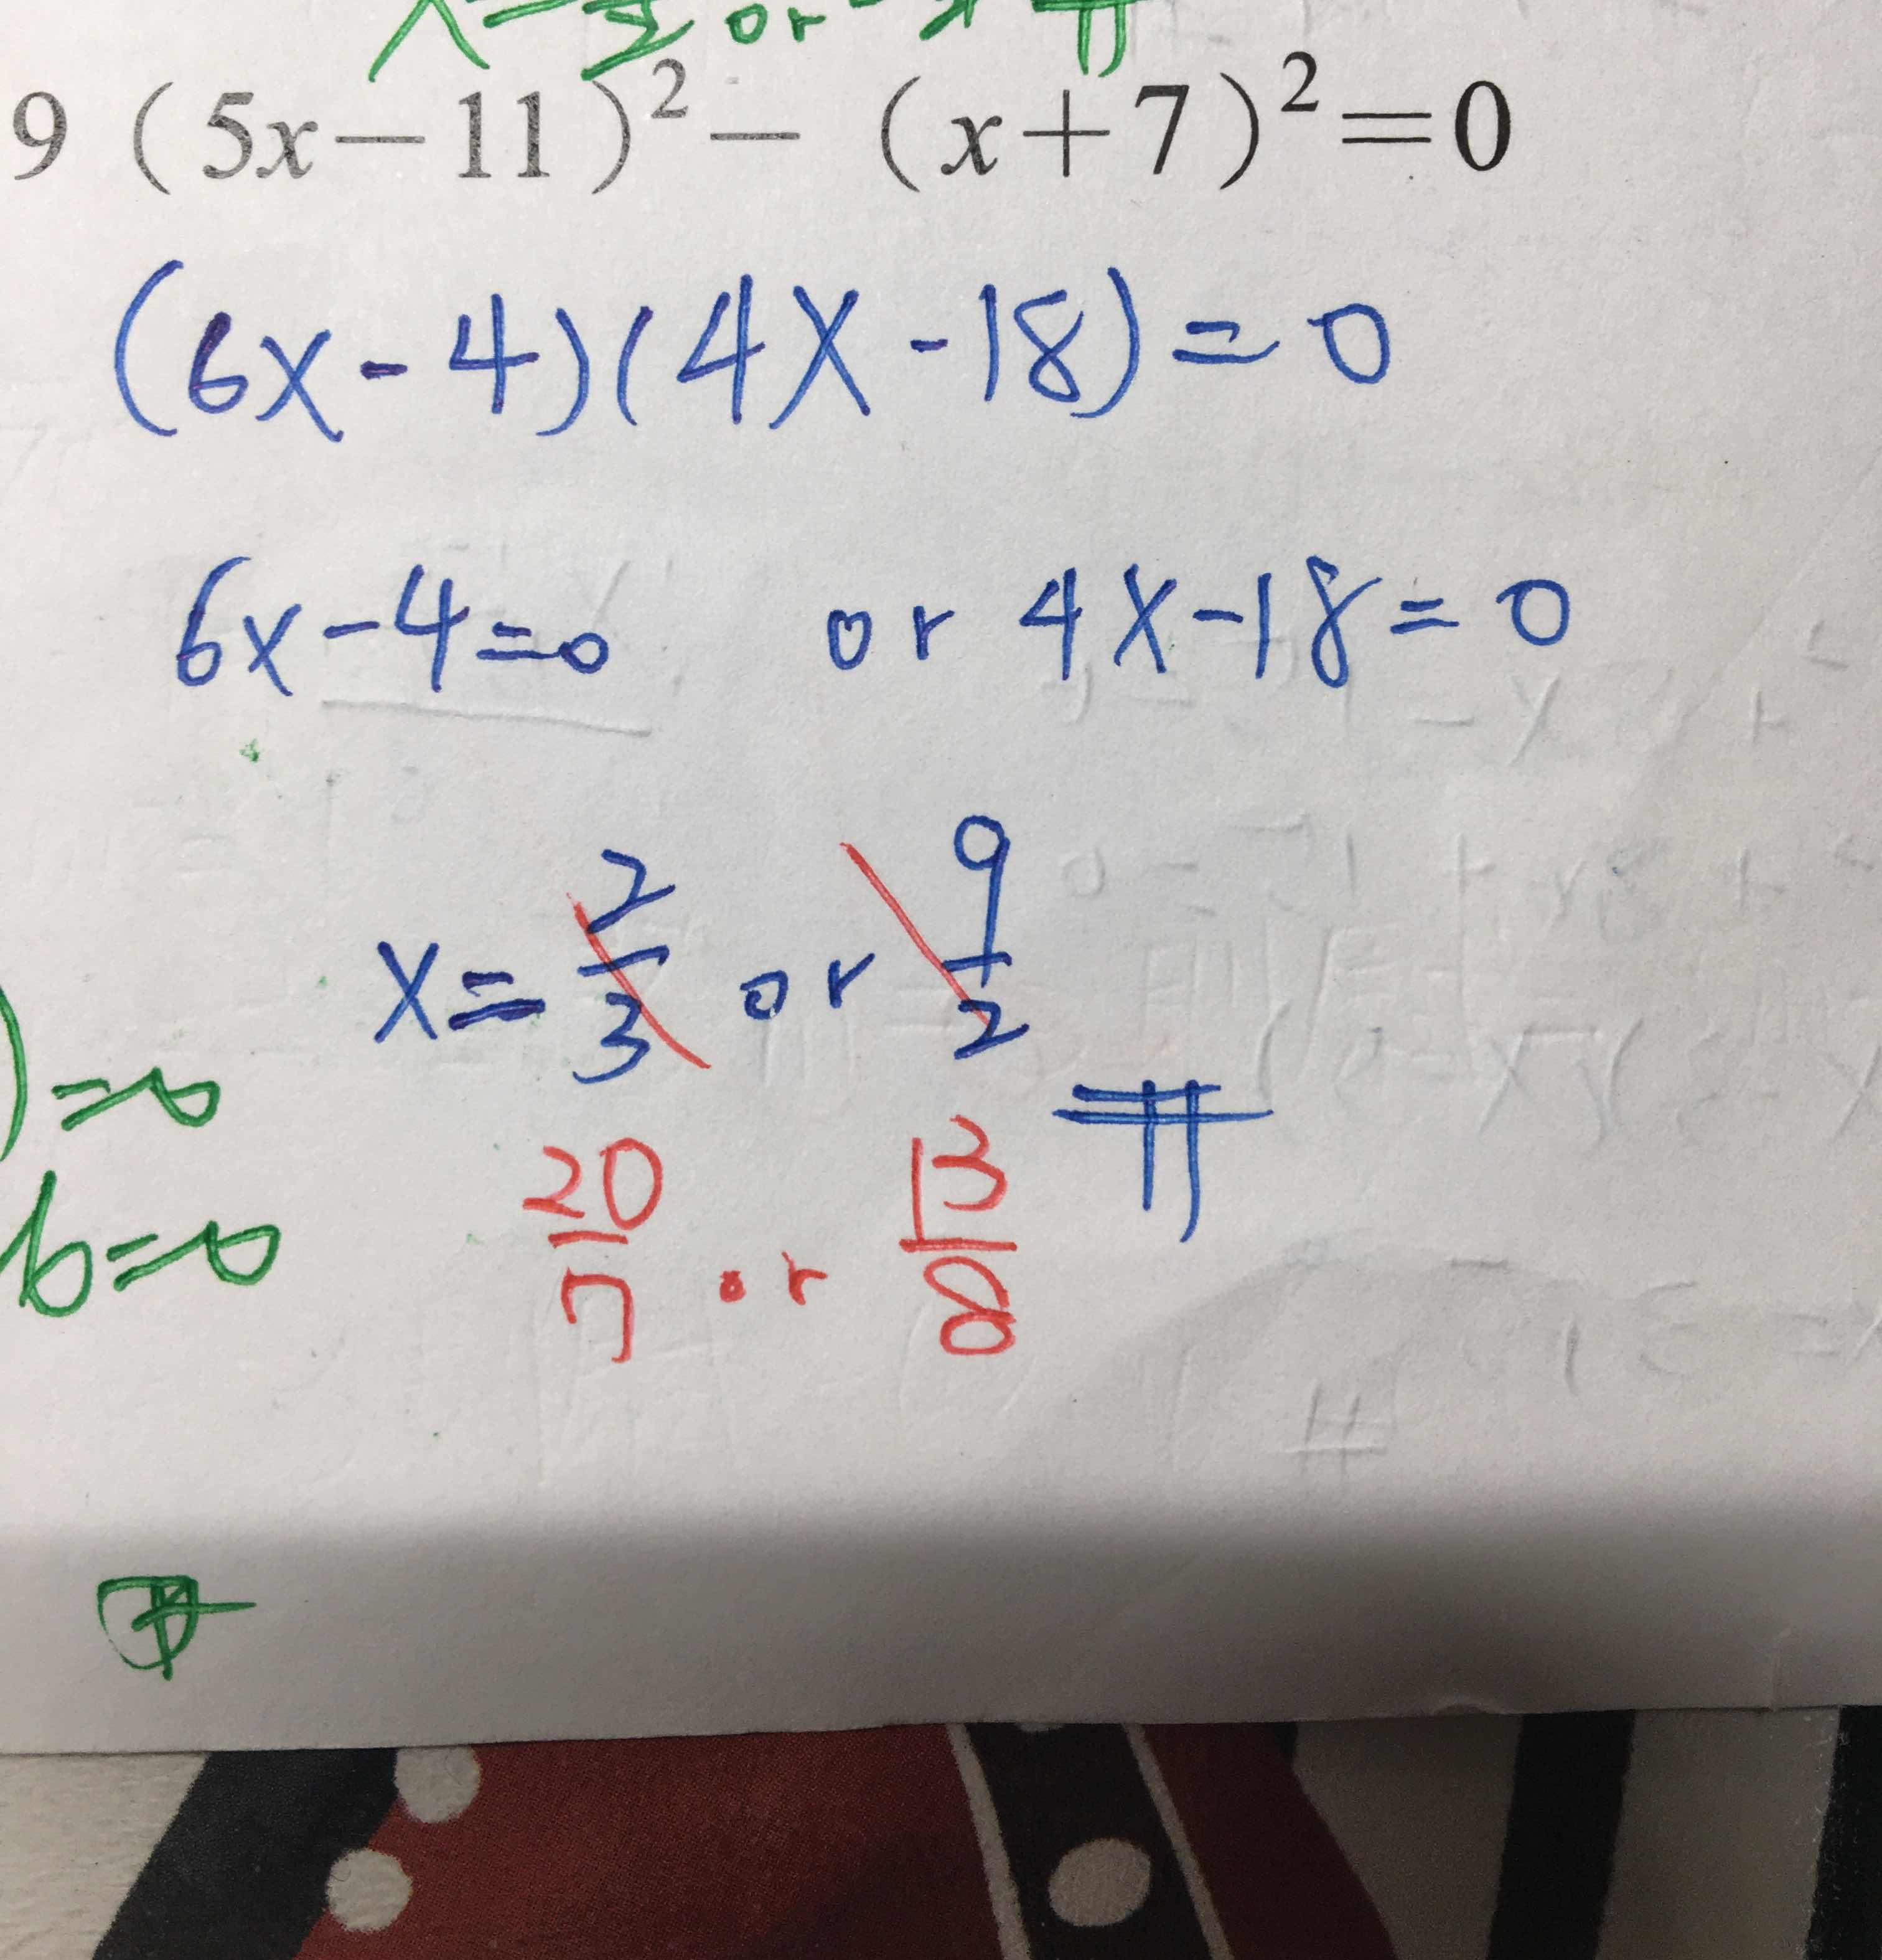 9（5x－11）²－（x＋7）²＝0
(6x-4)(4x-18)=0
6x-4=0 or 4x-18=0
x= 2/3 or 9/2
)=0
20/7 or 13/8
6=0